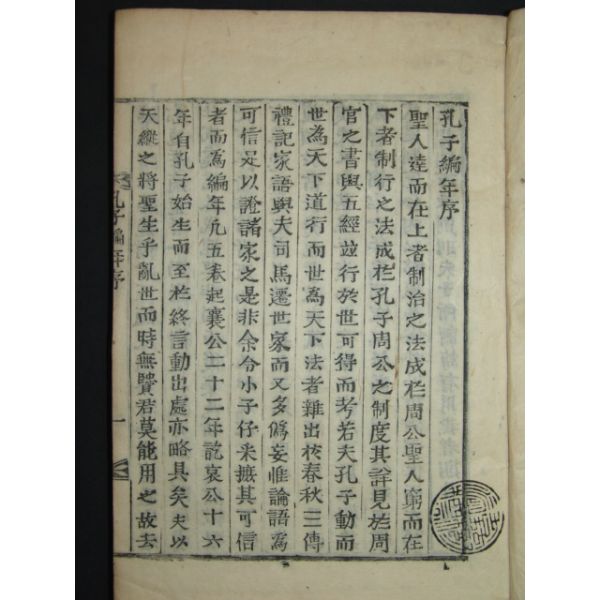 孔子編年序
聖人達而在上者制治之法成於周公聖人窮而在
下者制行之法成於孔子周公之制度其詳見於周
官之書與五經並行於世可得而考若夫孔子動而
世為天下道行而世為天下法者雜出於春秋三傳
禮記家語與夫司馬遷世家而又多僞妄惟論語為
可信足以證諸家之是非余令小子仔采摭其可信
者而爲編年凡五卷起襄公二十二年訖哀公十六
年自孔子始生而至於終言動出處亦略具矣夫以
天縱之將聖生乎亂世而時無賢君莫能用之故去
孔子編年序
一